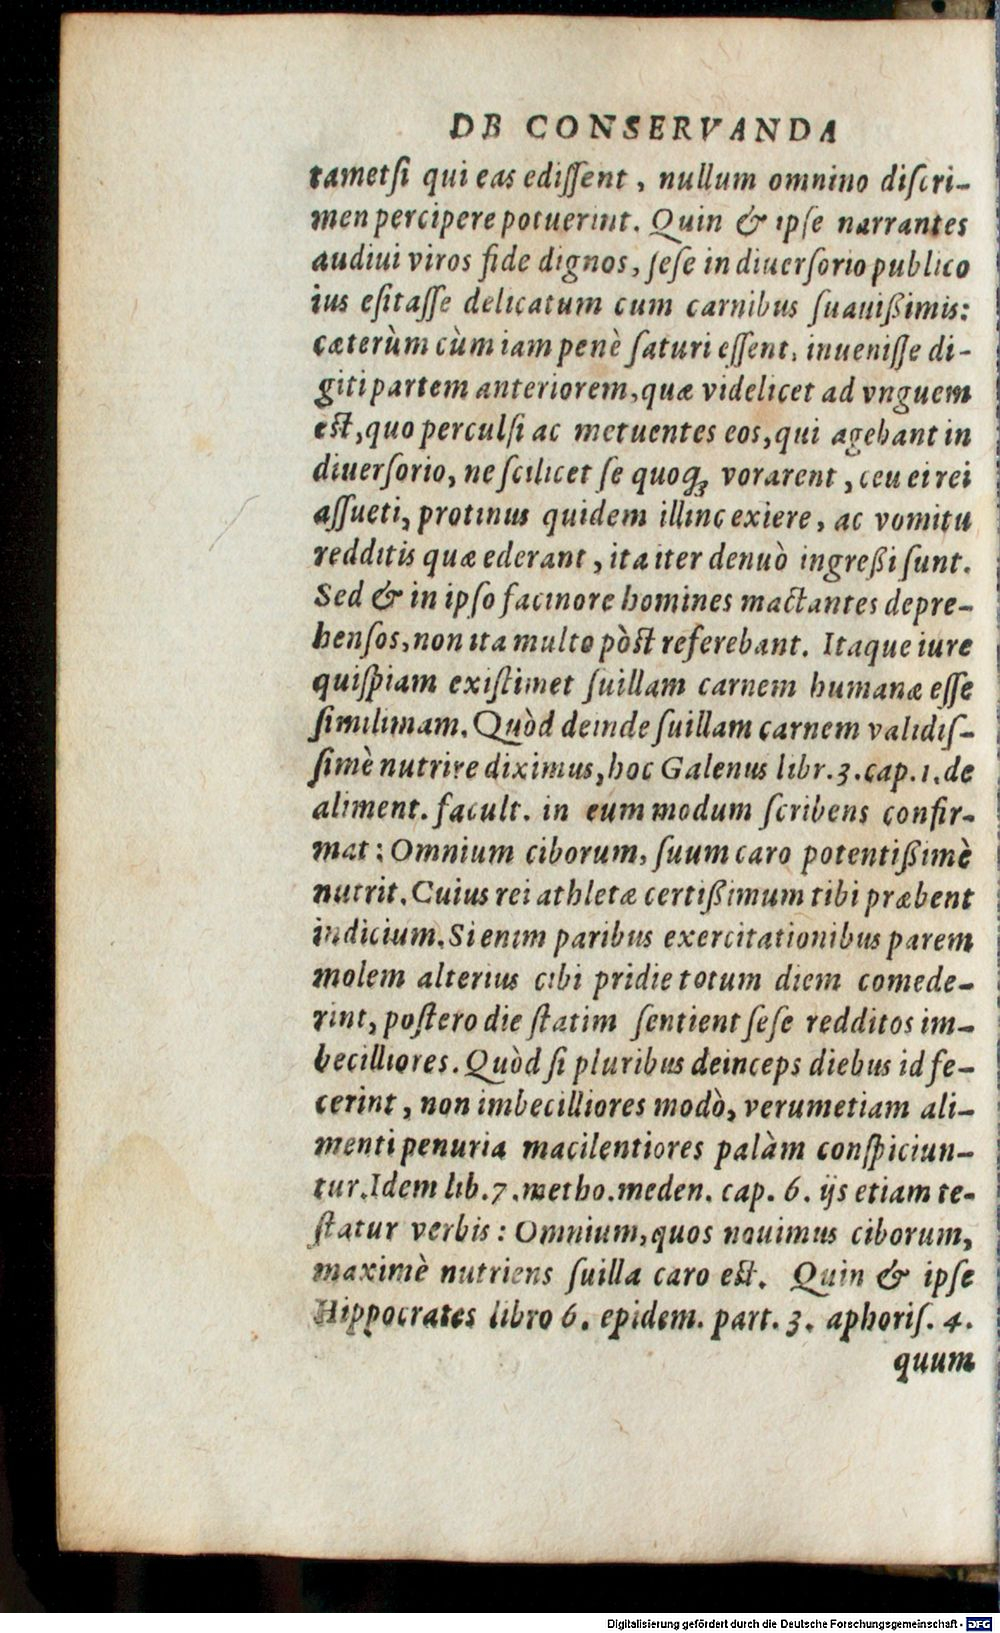 DE CONSERVANDA
tametſi qui eas ediſſent, nullum omnino diſcri-
men percipere potuerint. Quin & ipſe narrantes
audiui viros fide dignos, ſeſe in diuerſorio publico
ius eſitaſſe delicatum cum carnibus ſuauißimis:
cæterùm cùm iam penè ſaturi eſſent, inueniſſe di-
giti partem anteriorem, quæ videlicet ad vnguem
est, quo perculſi ac metuentes eos, qui agebant in
diuerſorio, ne ſcilicet ſe quoq; vorarent, ceu ei rei
aſſueti, protinus quidem illinc exiere, ac vomitu
redditis quæ ederant, ita iter denuò ingreßi ſunt.
Sed & in ipſo facinore homines mactantes depre-
henſos, non ita multo pòst referebant. Itaque iure
quiſpiam exiſtimet ſuillam carnem humanæ eſſe
ſimilimam. Quòd deinde ſuillam carnem validiſ-
ſimè nutrire diximus, hoc Galenus libr. 3. cap. 1. de
aliment. facult. in eum modum ſcribens confir-
mat: Omnium ciborum, ſuum caro potentißimè
nutrit. Cuius rei athletæ certißimum tibi præbent
indicium. Si enim paribus exercitationibus parem
molem alterius cibi pridie totum diem comede-
rint, poſtero die ſtatim ſentient ſeſe redditos im-
becilliores. Quòd ſi pluribus deinceps diebus id fe-
cerint, non imbecilliores modò, verumetiam ali-
menti penuria macilentiores palàm conſpiciun-
tur. Idem lib. 7. metho. meden. cap. 6. ijs etiam te-
ſtatur verbis: Omnium, quos nouimus ciborum,
maximè nutriens ſuilla caro est. Quin & ipſe
Hippocrates libro 6. epidem. part. 3. aphoriſ. 4.
quum
Digitalisierung gefördert durch die Deutsche Forschungsgemeinschaft - DFG